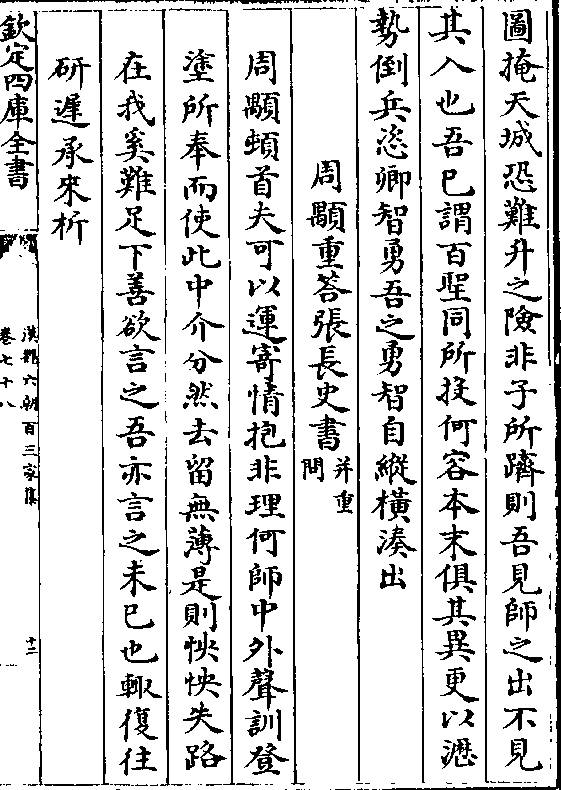 圖掩天城恐難升之險非子所躋則吾見師之出不見
其入也吾已謂百聖同所投何容本末俱其異更以瀝
勢倒兵恣卿智勇吾之勇智自縱橫湊出
周顒重答張長史書
并重
問
周顒頓首夫可以運寄情抱非理何師中外聲訓登
塗所奉而使此中介介然去留無薄是則怏怏失路
在我奚難足下善欲言之吾亦言之未已也輙復往
研遲承來析
欽定四庫全書
漢魏六朝百三家集
卷七十八
十二